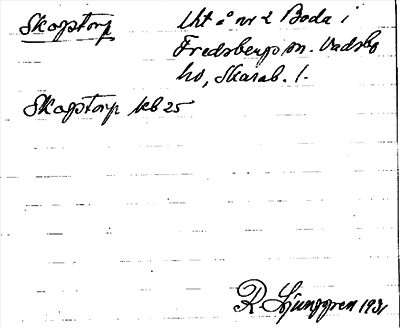 Skogstorp
Lht å nr 2 Boda i
Fredsbergs sn. Vadsbo
hd, Skarab. l.
Skogstorp kb 25
R Ljunggren 1931